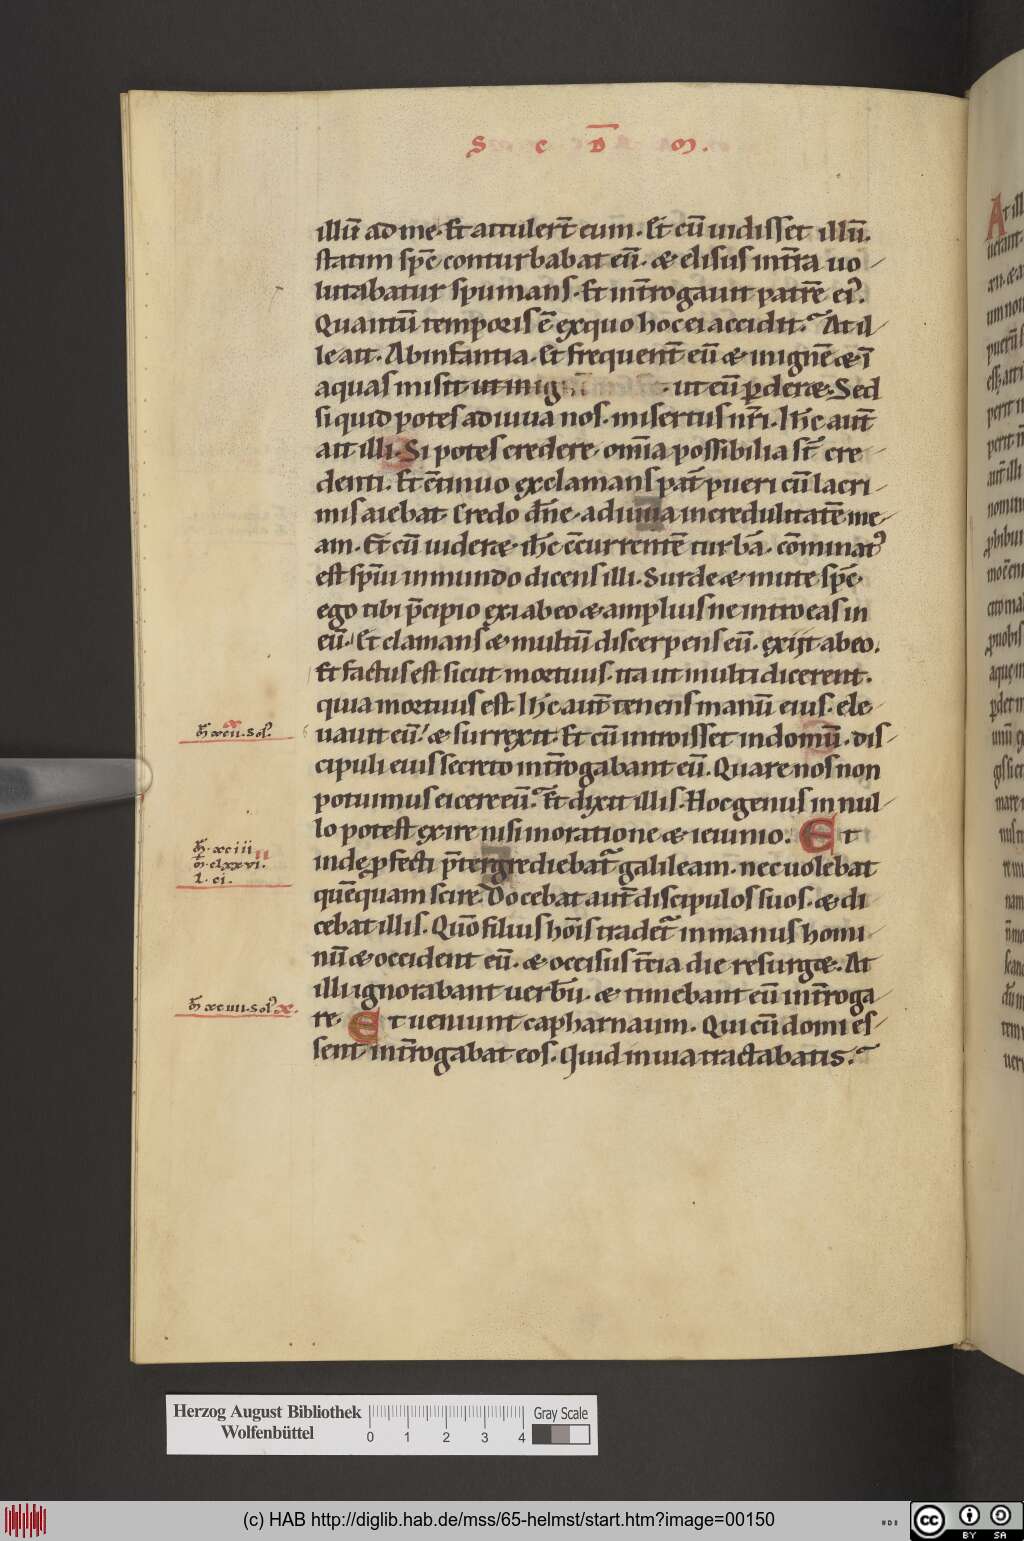 S C D̅ M.
illū ad me. Et attulert̄ eum. Et cū uidisset illū.
statim sp̄c conturbabat eū. & elisus int̄ra uo
lutabatur spumans. Et int̄rogauit patrē ei᾿.
Quantū temporis ē exquo hoc ei accidit. At il
le ait. Ab infantia. Et frequent̄ eū & in ignē & ī
aquas misit ut eū ꝑderet. Sed
si quid potes adiuua nos. misertus nr̄i. Ih̄c aut̄
ait illi. Si potes credere. omīa possibilia st̄ cre
denti. Et c̄tinuo exclamans pat̄ pueri cū lacri
mis aiebat. Credo dn̄e. adiuua incredulitatē me
am. Et cū uideret ih̄c c̄currentē turbā. cōminat᾿
est sp̄iu inmundo dicens illi. Surde & mute sp̄c
ego tibi p̄cipio exi ab eo & amplius ne introeas in
eū. Et clamans & multū discerpens eū. exijt ab eo.
Et factus est sicut mortuus. ita ut multi dicerent.
quia mortuus est. Ih̄c aut̄ tenens manū eius. ele
uauit eū. & surrexit. Et cū introisset in domū. dis
cipuli eius secreto int̄rogabant eū. Quare nos non
potuimus eicere eū. Et dixit illis. Hoc genus in nul
lo potest exire nisi in oratione & ieiunio. Et
inde ꝓfecti p̄tergrediebat̄ galileam. nec uolebat
quēquam scire. Docebat aut̄ discipulos suos. & di
cebat illis. Quō filius hōis tradet̄ in manus homi
nū & occident eū. & occisus t̄cia die resurget. At
illi ignorabant uerbū. & timebant eū int̄roga
re. Et ueniunt capharnaum. Qui cū domi es
sent int̄rogabat eos. Quid in uia tractabatis.
Herzog August Bibliothek
Wolfenbüttel
0 1 2 3 4
Gray Scale
(c) HAB http://diglib.hab.de/mss/65-helmst/start.htm?image=00150
cc BY SA